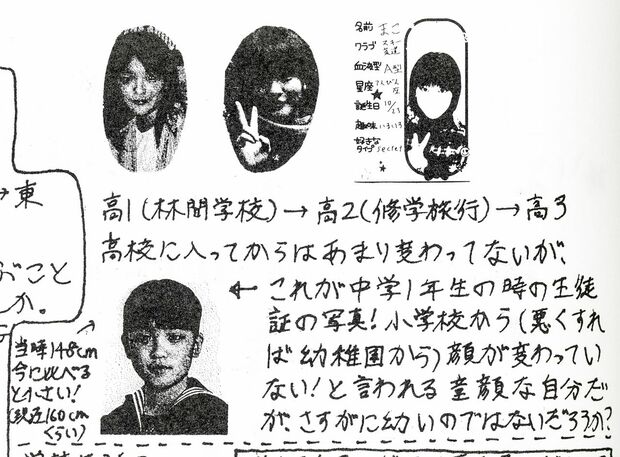 名前 まこ
クラブ スキー
友達
血液型 A型
星座 てんびん座
誕生日 10/23
趣味 いろいろ
好きなタイプ secret
→東
高1(林間学校)→高2(修学旅行)→高3
高校に入ってからはあまり変わってないが、
こと
か。
← これが中学1年生の時の生徒
証の写真!小学校から(悪くすれ
ば幼稚園から)顔が変わってい
ない!と言われる童顔な自分だ
が、さすがに幼いのではないだろうか?
当時148cm
今に比べる
と小さい!
(現在160cm
くらい)